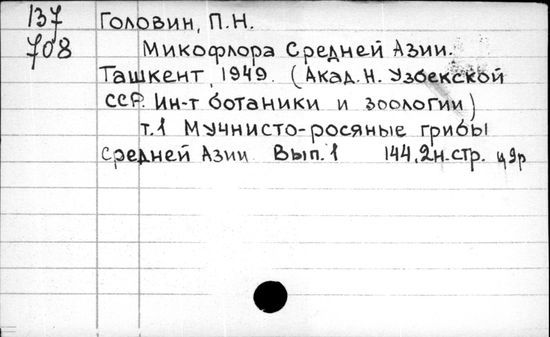 137
708
Головин, П.Н.
Микофлора Средней Азии.
Ташкент, 1949. (Акад. Н. Узбекской
ССР. Ин-т ботаники и зоологии)
т.1 Мучнисто-росяные грибы
Средней Азии Вып.1 144,2н.стр. ц9р